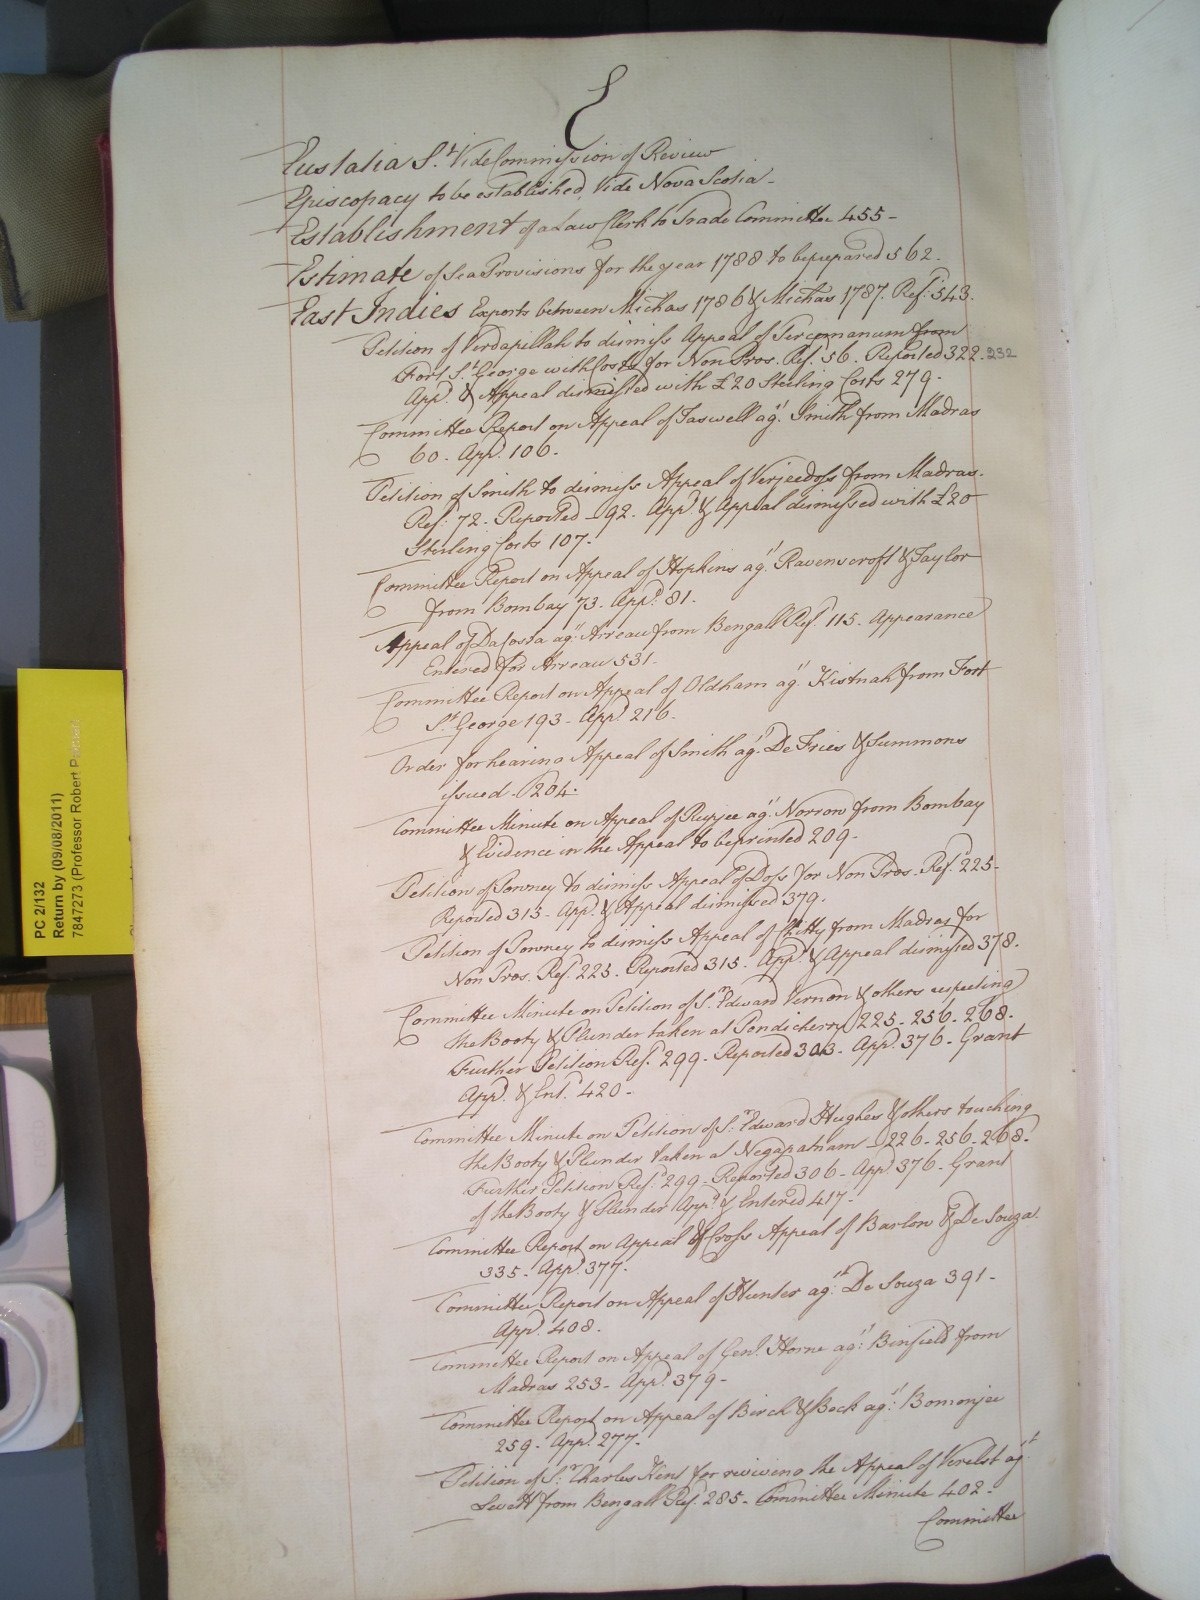 E
Eustatia St. Vide Commission of Review
Episcopacy to be established, Vide Nova Scotia -
Establishment of a Law Clerk to Trade Committee 455 -
Estimate of Sea Provisions for the year 1788 to be prepared 562.
East Indies Exports between Michas 1786 & Michas 1787. Ref: 543.
Petition of Verdapillah to dismiss Appeal of Tercomanum from
Fort St. George with Costs for Non Pros. Ref. 56. Reported 322. 232
App.d & Appeal dismissed with £20 Sterling Costs 279.
Committee Report on Appeal of Taswell ag.t Smith from Madras
60. App.d 106.
Petition of Smith to dismiss Appeal of Verjeedoss from Madras.
Ref.d 72. Reported - 92. App.d & Appeal dismissed with £20
Sterling Costs 107.
Committee Report on Appeal of Hopkins ag.t Ravenscroft & Taylor
from Bombay 73. App.d 81.
Appeal of DaCosta ag.t Arreau from Bengall Ref.d 115. Appearance
Entered for Arreau 531.
Committee Report on Appeal of Oldham ag.t Kistnah from Fort
St. George 193 - App.d 216.
Order for hearing Appeal of Smith ag.t De Fries & Summons
issued - 204.
Committee Minute on Appeal of Rupjee ag.t Norrow from Bombay
& Evidence in the Appeal to be printed 209.
Petition of Powney to dismiss Appeal of Doss for Non Pros. Ref.d 225.
Reported 315 - App.d & Appeal dismissed 379.
Petition of Powney to dismiss Appeal of Chitty from Madras for
Non Pros. Ref.d 225. Reported 315. App.d & Appeal dismissed 378.
Committee Minute on Petition of S.r Edward Vernon & others respecting
the Booty & Plunder taken at Pondicherry 225 - 256 - 268.
Further Petition Ref.d 299. Reported 303. App.d 376 - Grant
App.d & Ent.d 420 -
Committee Minute on Petition of S.r Edward Hughes & others touching
the Booty & Plunder taken at Negapatnam - 226 - 256 - 268.
Further Petition Ref.d 299 - Reported 306 - App.d 376 - Grant
of the Booty & Plunder App.d & Entered 417.
Committee Report on Appeal & Cross Appeal of Barlon & De Souza
335 - App.d 377.
Committee Report on Appeal of Hunter ag.t De Souza 391 -
App.d 408.
Committee Report on Appeal of Gen.l Horne ag.t Binfield from
Madras 253 - App.d 379 -
Committee Report on Appeal of Birch & Beck ag.t Bomonjee
259. App.d 277.
Petition of S.r Charles for reviving the Appeal of Verelst ag.t
Levett from Bengall Ref.d 285 - Committee Minute 402 -
Committee
PC 2/132
Return by (09/08/2011)
7847273 (Professor Robert